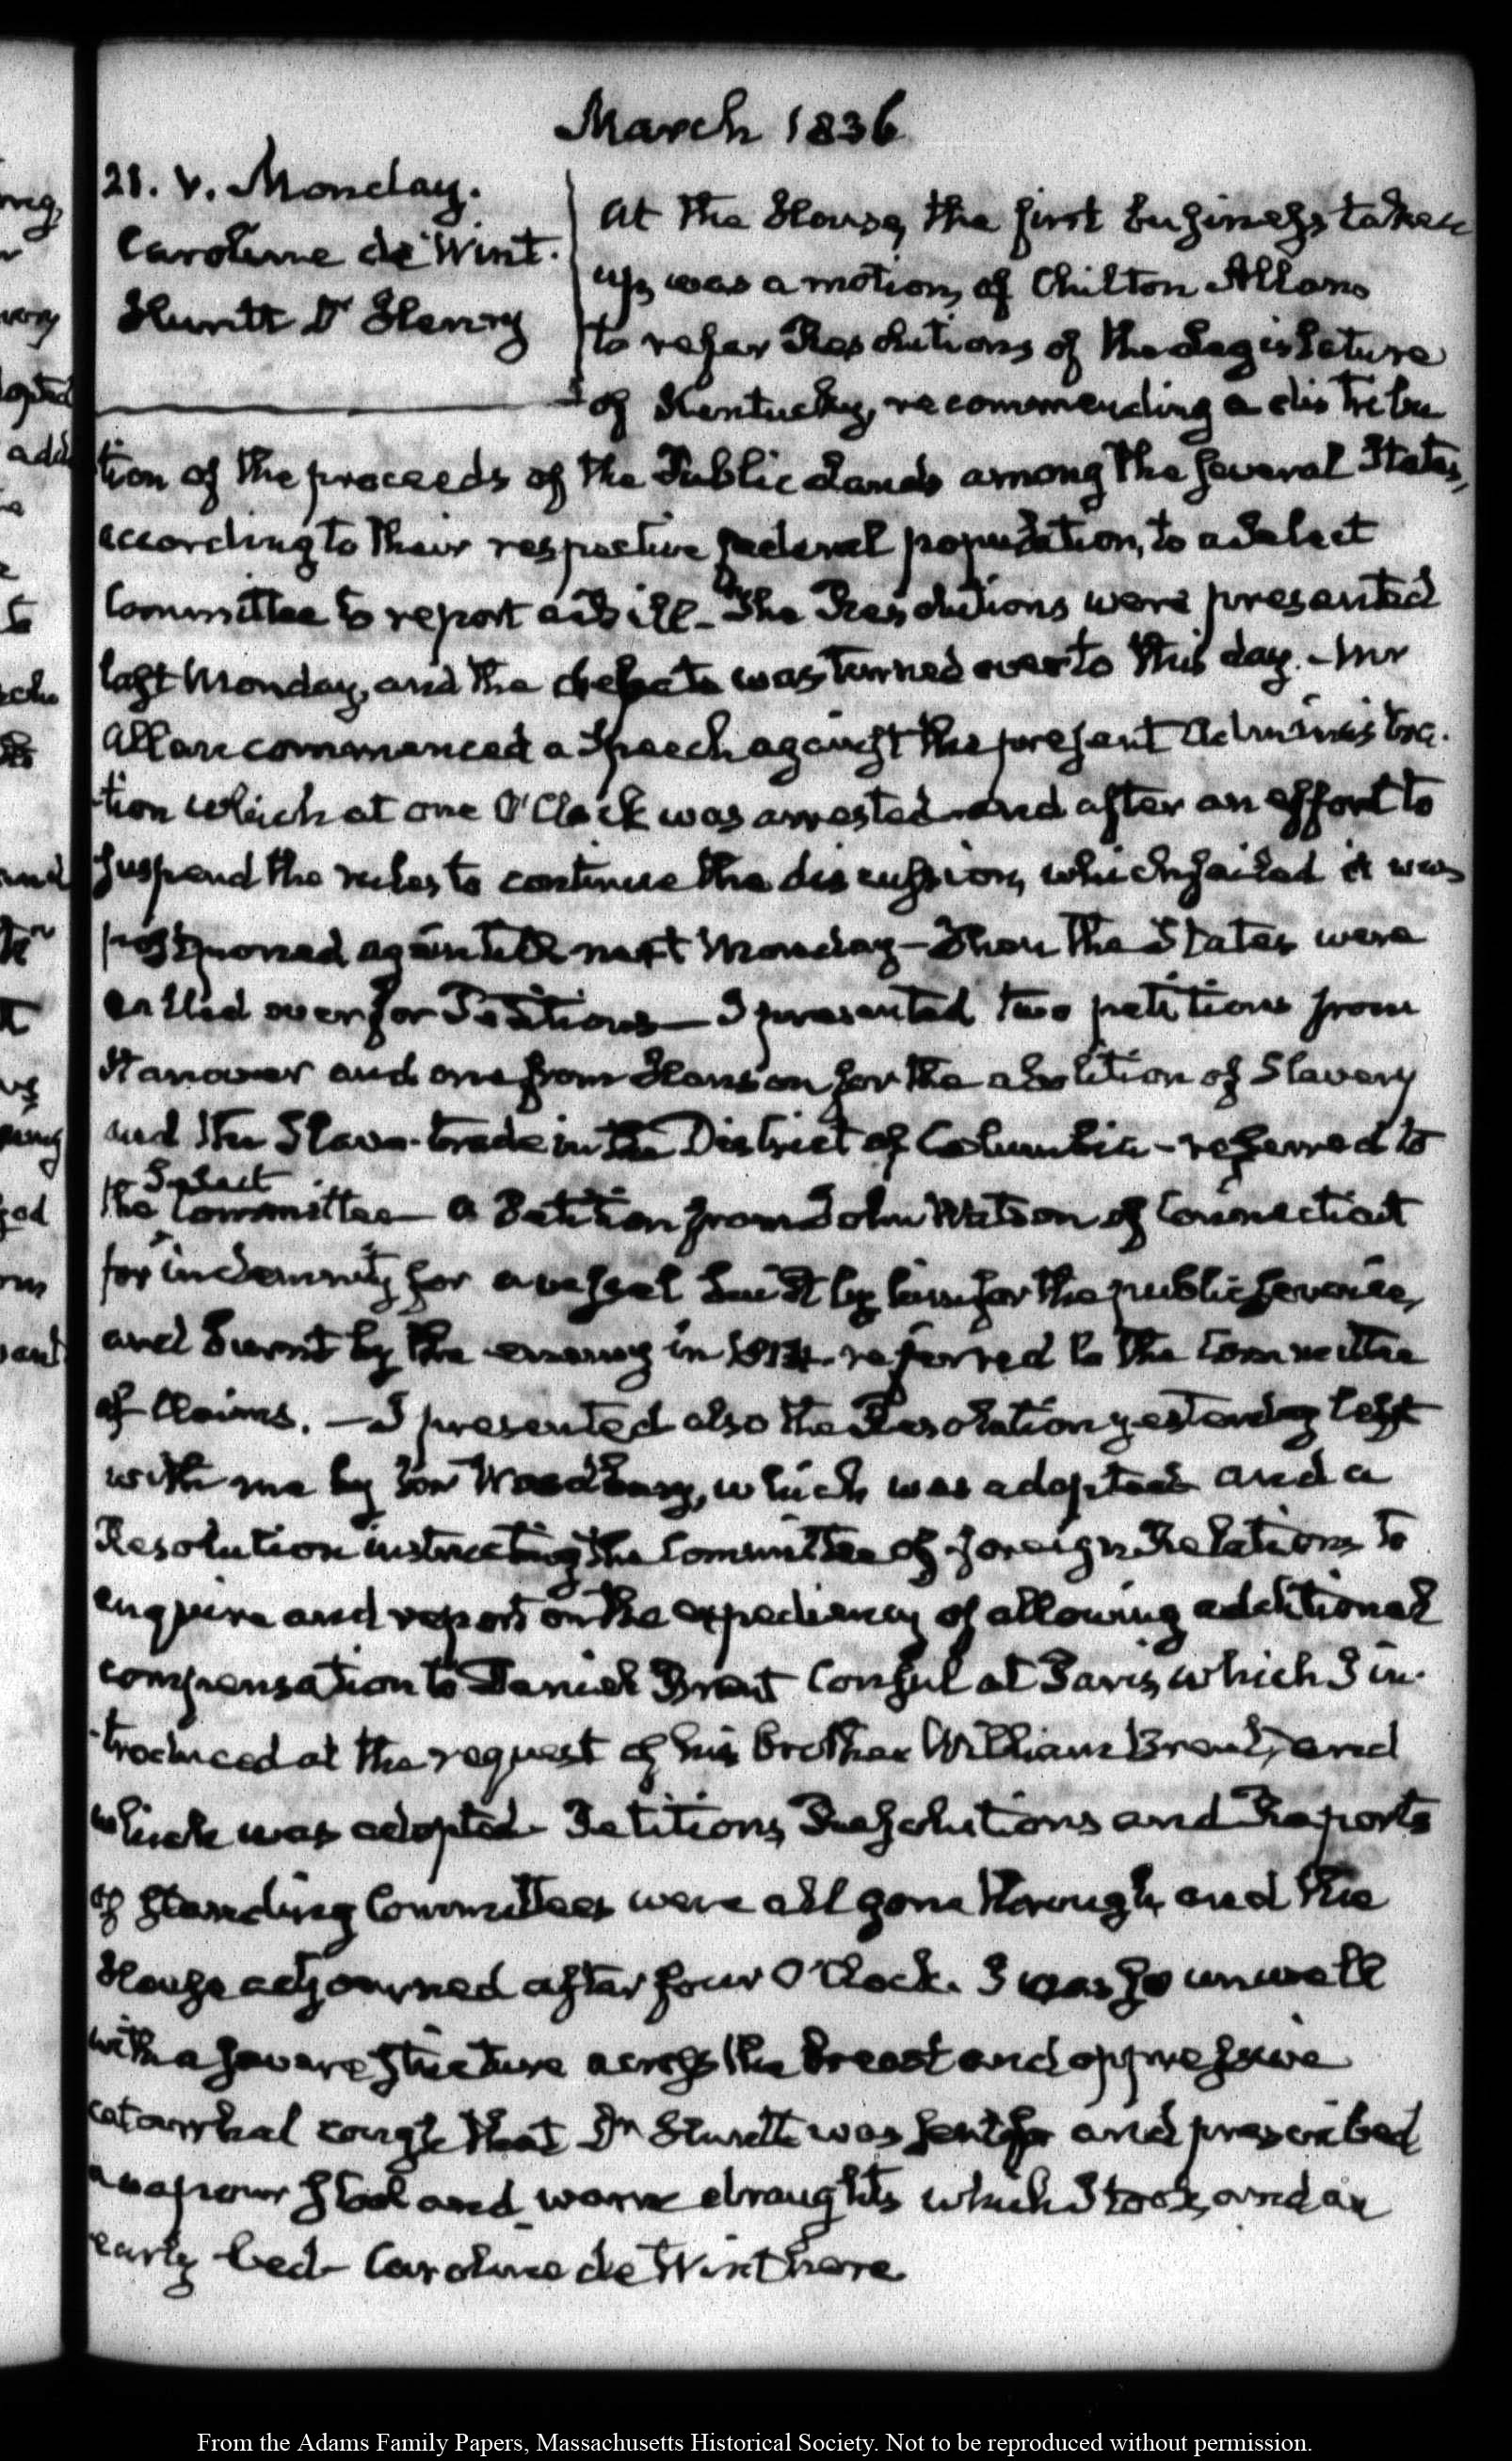 March 1836
21. V. Monday.
Caroline de Wint.
Huntt Dr Henry
At the House, the first business taken
up, was a motion, of Chilton Allan,
to refer Resolutions of the Legislature
of Kentucky, recommending a distribu
tion of the proceeds of the Public Lands among the several States,
according to their respective federal population, to a Select
Committee to report a Bill_ The Resolutions were presented
last Monday, and the debate was turned over to this day. – Mr
Allan commenced a Speech against the present Administra-
tion which at one O'Clock was arrested and after an effort to
suspend the rules to continue the discussion, which failed it was
postponed again till next Monday – Then the States were
called over for Petitions — I presented two petitions from
Hanover and one from Hanson for the abolition of Slavery
and the Slave-trade in the District of Columbia – referred to
the Select Committee — a Petition from John Watson of Connecticut
for indemnity for a vessel built by him for the public service,
and burnt by the enemy in 1814. referred to the Committee
of Claims. — I presented also the Resolution yesterday left
with me by Woodbury, which was adopted and a
Resolution instructing the Committee of foreign Relations, to
enquire and report on the expediency of allowing additional
compensation to Daniel Brent Consul at Paris, which I in-
troduced at the request of his brother William Brent, and
which was adopted. Petitions, Resolutions and Reports
of standing Committees were all gone through, and the
House adjourned after four O'Clock. I was so unwell
with a severe stricture across the breast and oppressive
catarrhal cough that Dr Huntt was sent for and prescribed
a vapour stool and warm draughts which I took, and an
early bed – Caroline de Wint here
From the Adams Family Papers, Massachusetts Historical Society. Not to be reproduced without permission.